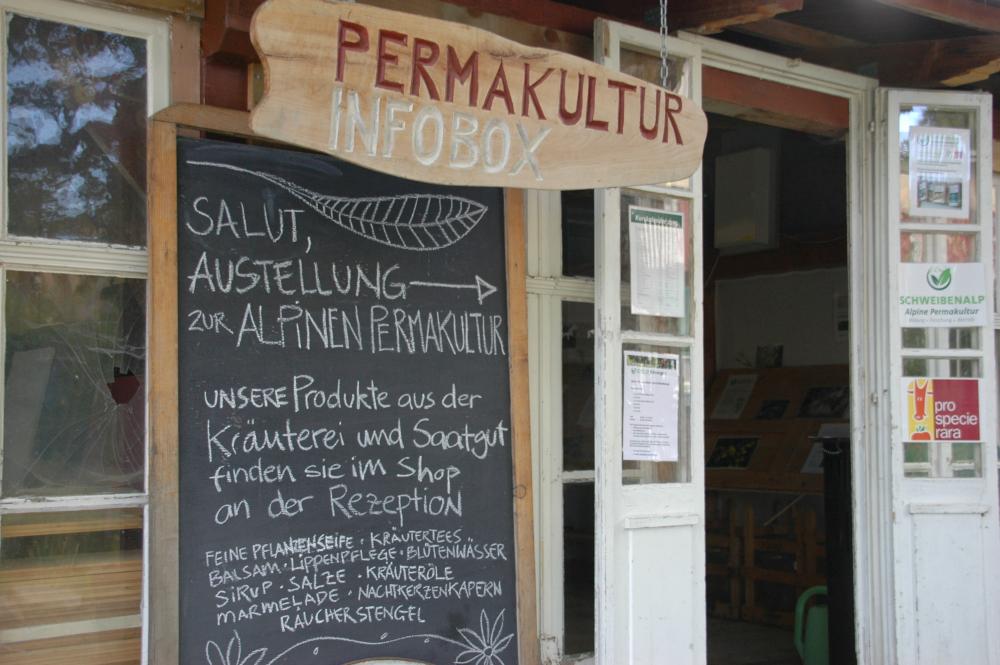 PERMAKULTUR
INFOBOX
SALUT,
AUSTELLUNG
ZUR ALPINEN PERMAKULTUR
UNSERE Produkte aus der
Kräuterei und Saatgut
finden sie im Shop
an der Rezeption
FEINE PFLANZENSEIFE · KRÄUTERTEES
BALSAM · LIPPENPFLEGE · BLÜTENWÄSSER
SIRUP · SALZE · KRÄUTERÖLE
MARMELADE · NACHTKERZENKAPERN
RÄUCHERSTENGEL
SCHWEIBENALP
Alpine Permakultur
pro
specie
rara